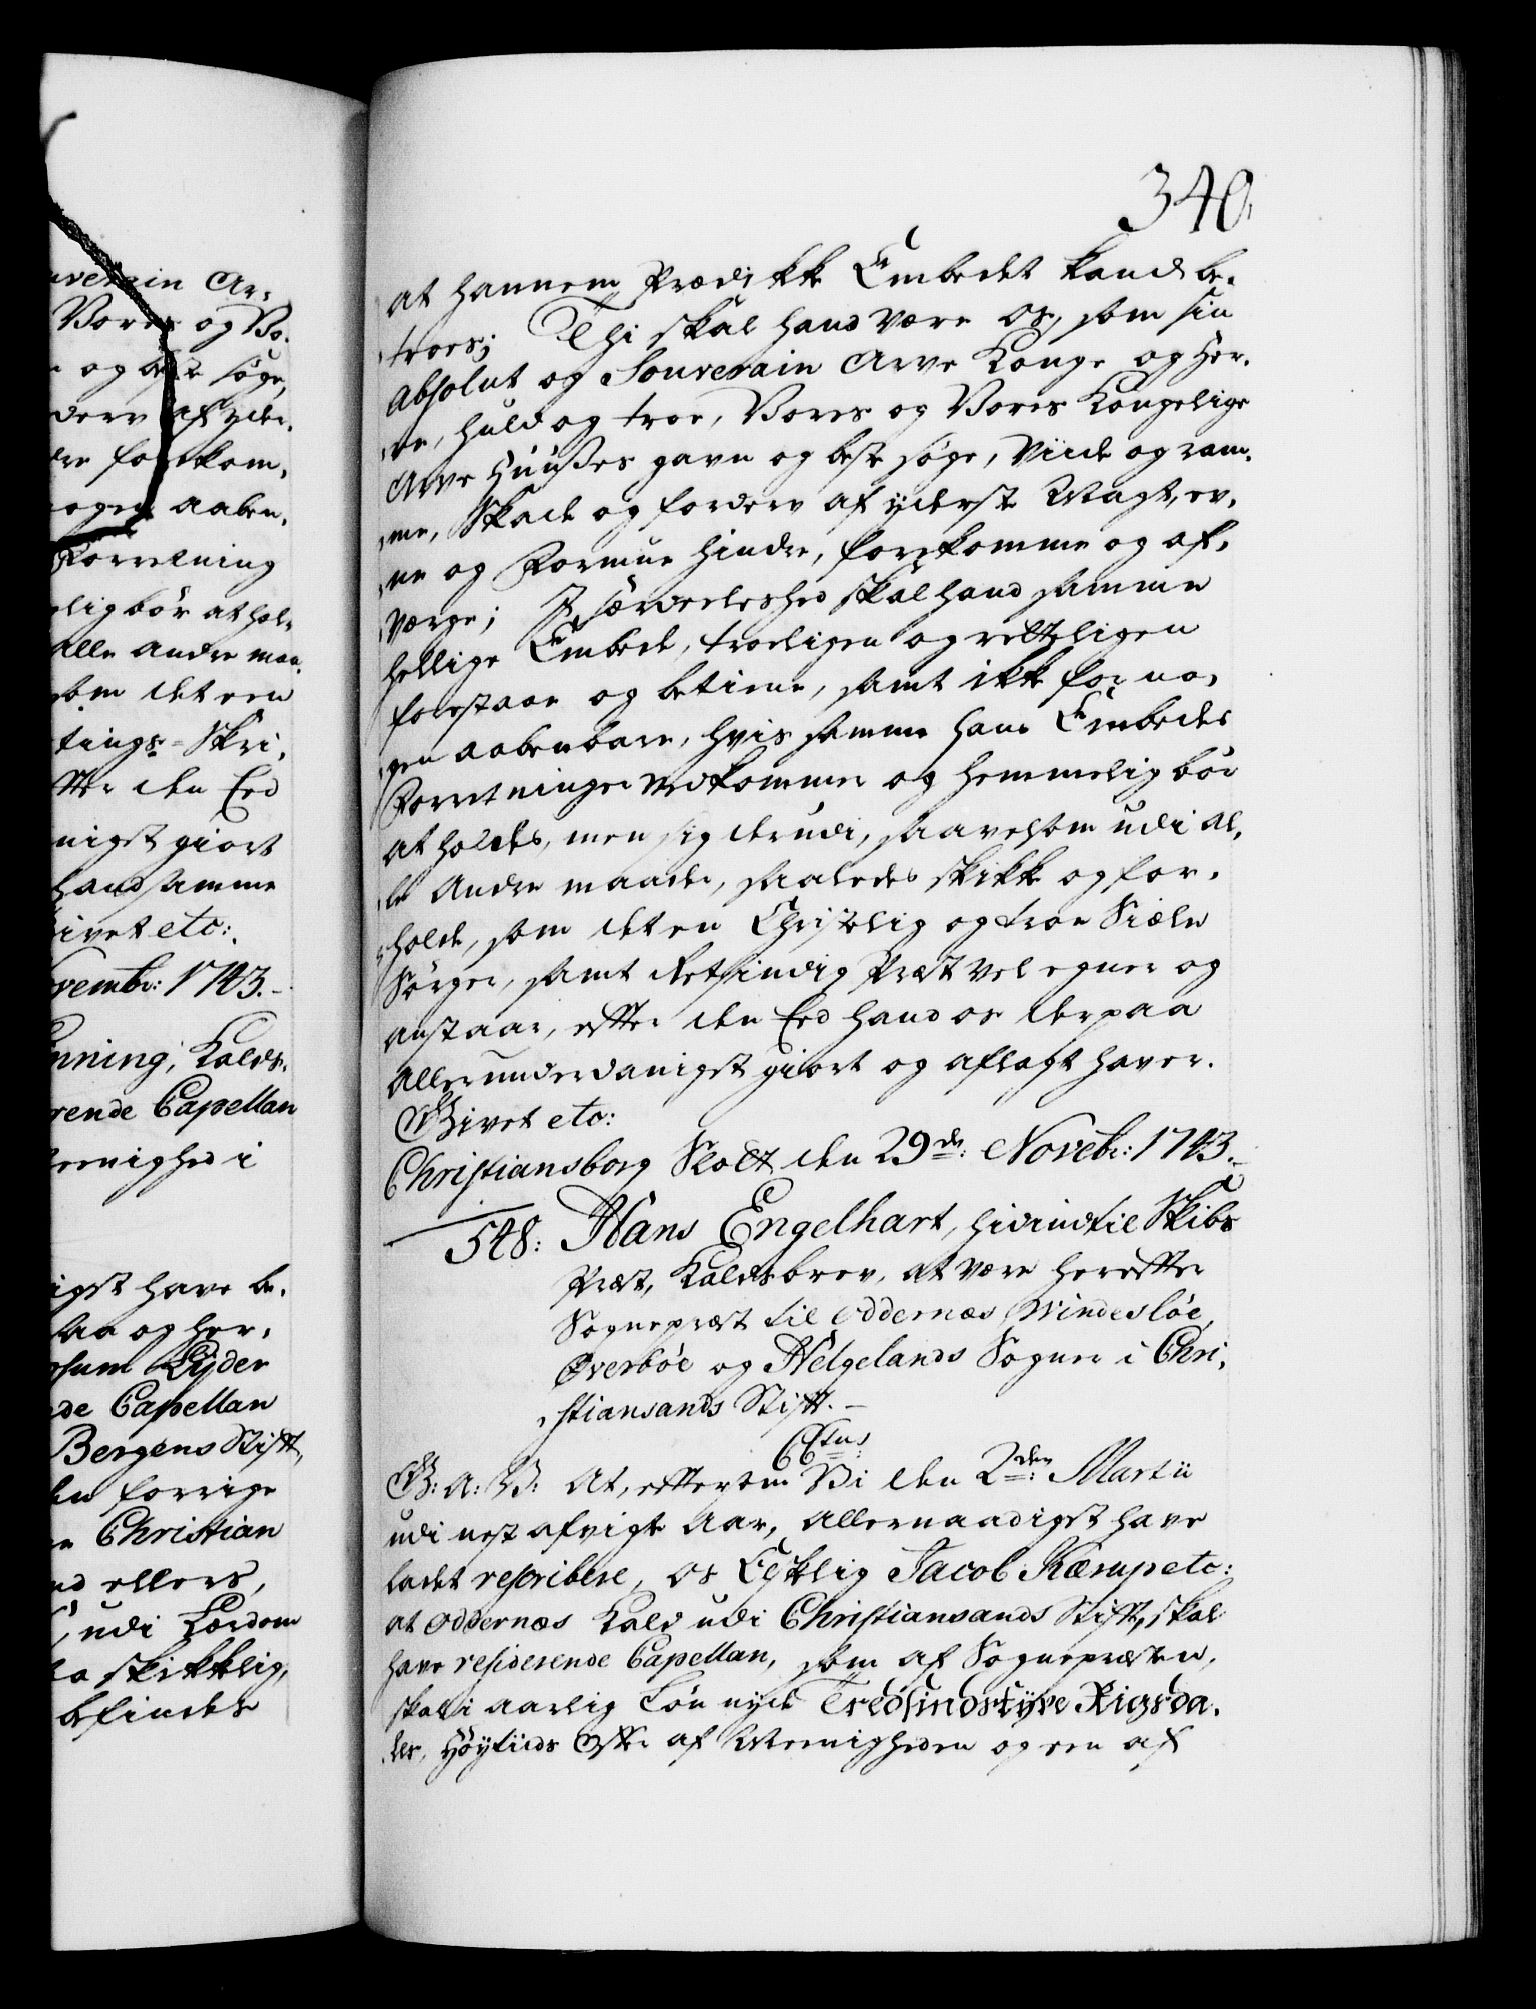 uverain Ar-
Vores og Vo-
og beste søge,
derv af yder-
dre forrekom-
nogen aaben-
Forretning
melig bør at hol-
alle andre maa-
som det een
tings-Skri-
efter den Eed
nigst giort
hand samme
Givet etc:
Novembr: 1743.
nning, Kalds-
rende Capellan
Meenighed i
igst have be-
saa og her-
sum Lyder
de Capellan
Bergens Stift,
den forrige
Christian
nd ellers,
udi Lærdom
skikkelig,
befindes
340.
at hannem Prædike Embedet kand be-
troes; Thi skal hand være Os, som sin
absolut og Souverain Arve Konge og Her-
re, huld og troe, Vores og Vores Kongelige
Arve Huuses gavn og beste søge, viide og ram-
me, Skade og forderv af yderste Magt, ev-
ne og Formue hindre, forrekomme og af-
værge; I særdeeleshed skal hand samme
hellige Embede, troeligen og retteligen
forestaae og betiene, samt ikke for no-
gen aabenbare, hvis samme hans Embedes
Forretninger vedkommer og hemmelig bør
at holdes, men sig derudi, saavelsom udi al-
le andre maader, saaledes skikke og for-
holde, som det en Christelig og troe Siæle
Sørger, samt Retsindig Præst vel egner og
anstaar, efter den Eed hand os derpaa
allerunderdanigst giort og aflagt haver.
Givet etc:
Christiansborg Slott den 29de: Novebr: 1743.
548: Hans Engelhart, hidindtil Skibs
Præst, Kaldsbrev, at være herefter
Sognepræst til Oddernæs, Vindesløe,
Øverbøe og Helgelands Sogner i Chri-
stiansands Stift.
CCtus
G: A: V: At, eftersom Vi den 2den: Martii
udi nest afvigte Aar, allernaadigst have
ladet rescribere, Os Elskelig Jacob Kærup etc:
at Oddernæs Kald udi Christiansands Stift, skal
have residerende Capellan, som af Sognepræsten,
skal i aarlig Løn nyde Tredsindstyve Rigsda-
ler, Høytiids Offer af Meenigheden og een af